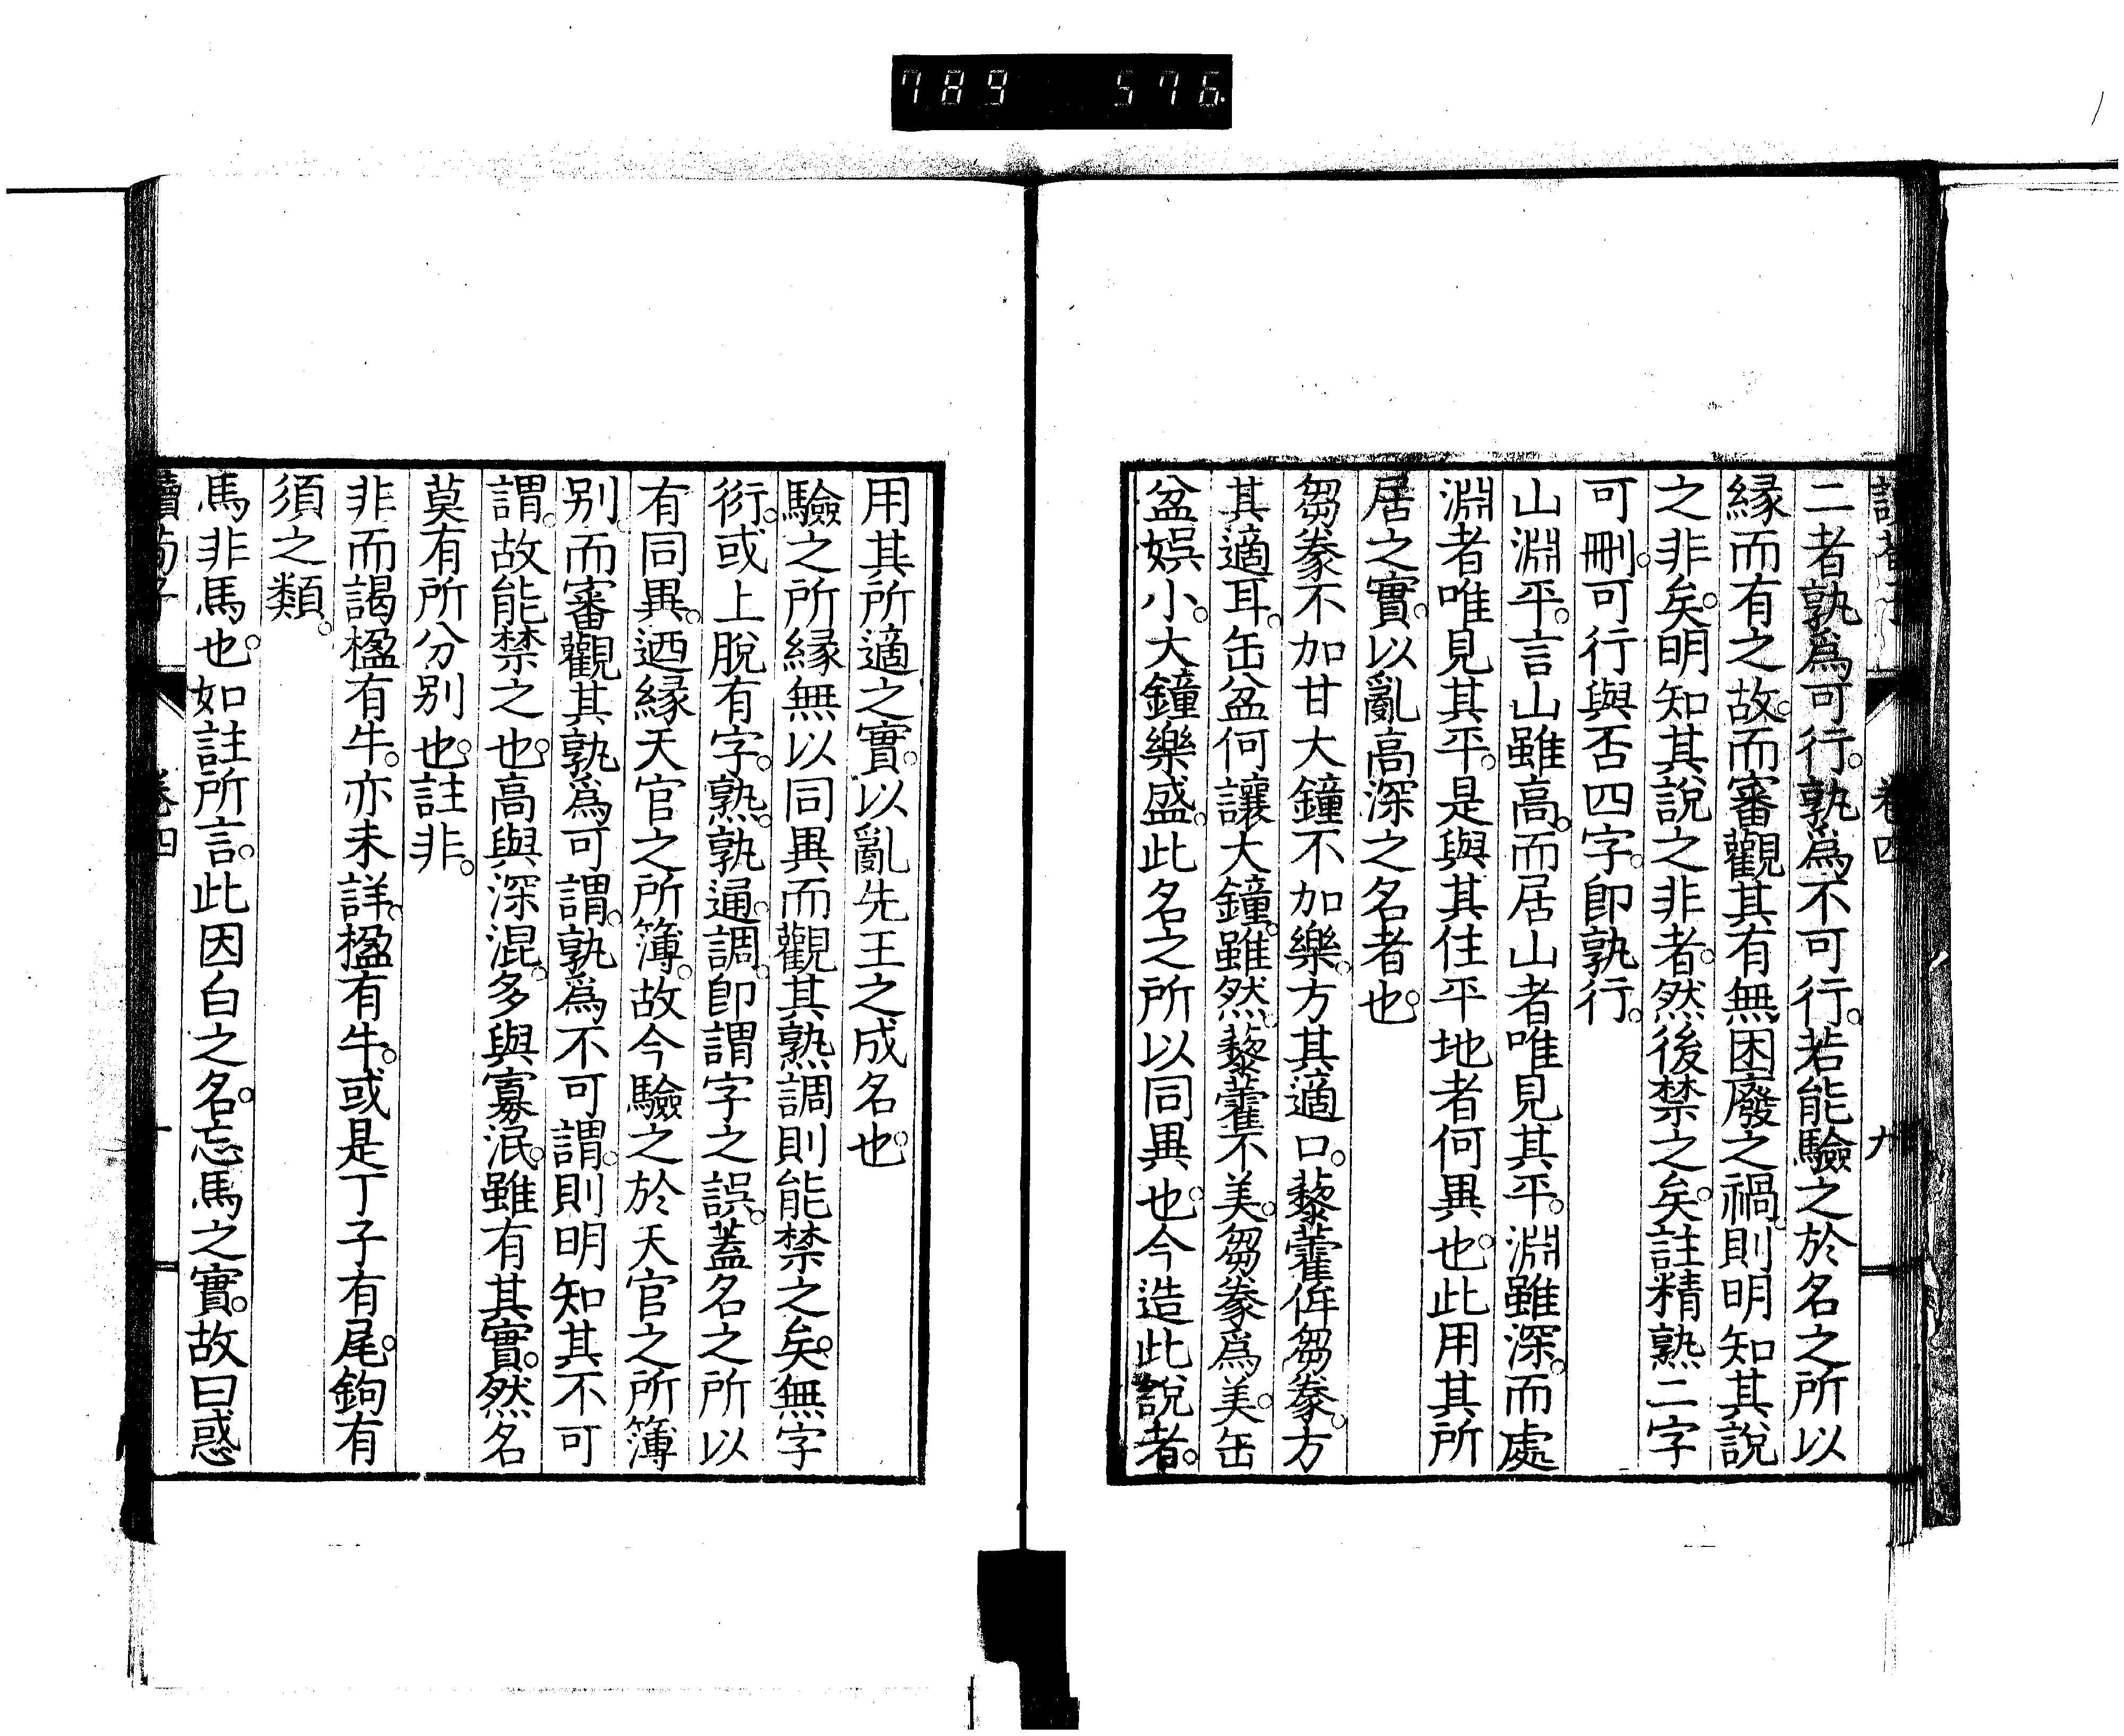 789 576
讀荀子 卷四 九
二者孰爲可行。孰爲不可行。若能驗之於名之所以
縁而有之故。而審觀其有無困廢之禍。則明知其説
之非矣。明知其説之非者。然後禁之矣。註精熟二字
可刪。可行與否四字。卽孰行。
山淵平。言山雖高。而居山者唯見其平。淵雖深。而處
淵者唯見其平。是與其住平地者何異也。此用其所
居之實。以亂高深之名者也。
芻豢不加甘大鐘不加樂。方其適口。藜藿侔芻豢。方
其適耳。缶盆何讓大鐘。雖然。藜藿不美。芻豢爲美。缶
盆娯小。大鐘樂盛。此名之所以同異也。今造此説者。
用其所適之實。以亂先王之成名也。
驗之所縁無以同異而觀其熟調則能禁之矣。無字
衍。或上脫有字。熟。孰通。調。卽謂字之誤。蓋名之所以
有同異。迺縁天官之所簿。故今驗之於天官之所簿
別。而審觀其孰爲可謂。孰爲不可謂。則明知其不可
謂。故能禁之也。高與深混。多與寡泯。雖有其實。然名
莫有所分別也。註非。
非而謁楹有牛。亦未詳。楹有牛。或是丁子有尾。鉤有
須之類。
馬非馬也。如註所言。此因白之名。忘馬之實。故曰惑
讀荀子 卷四